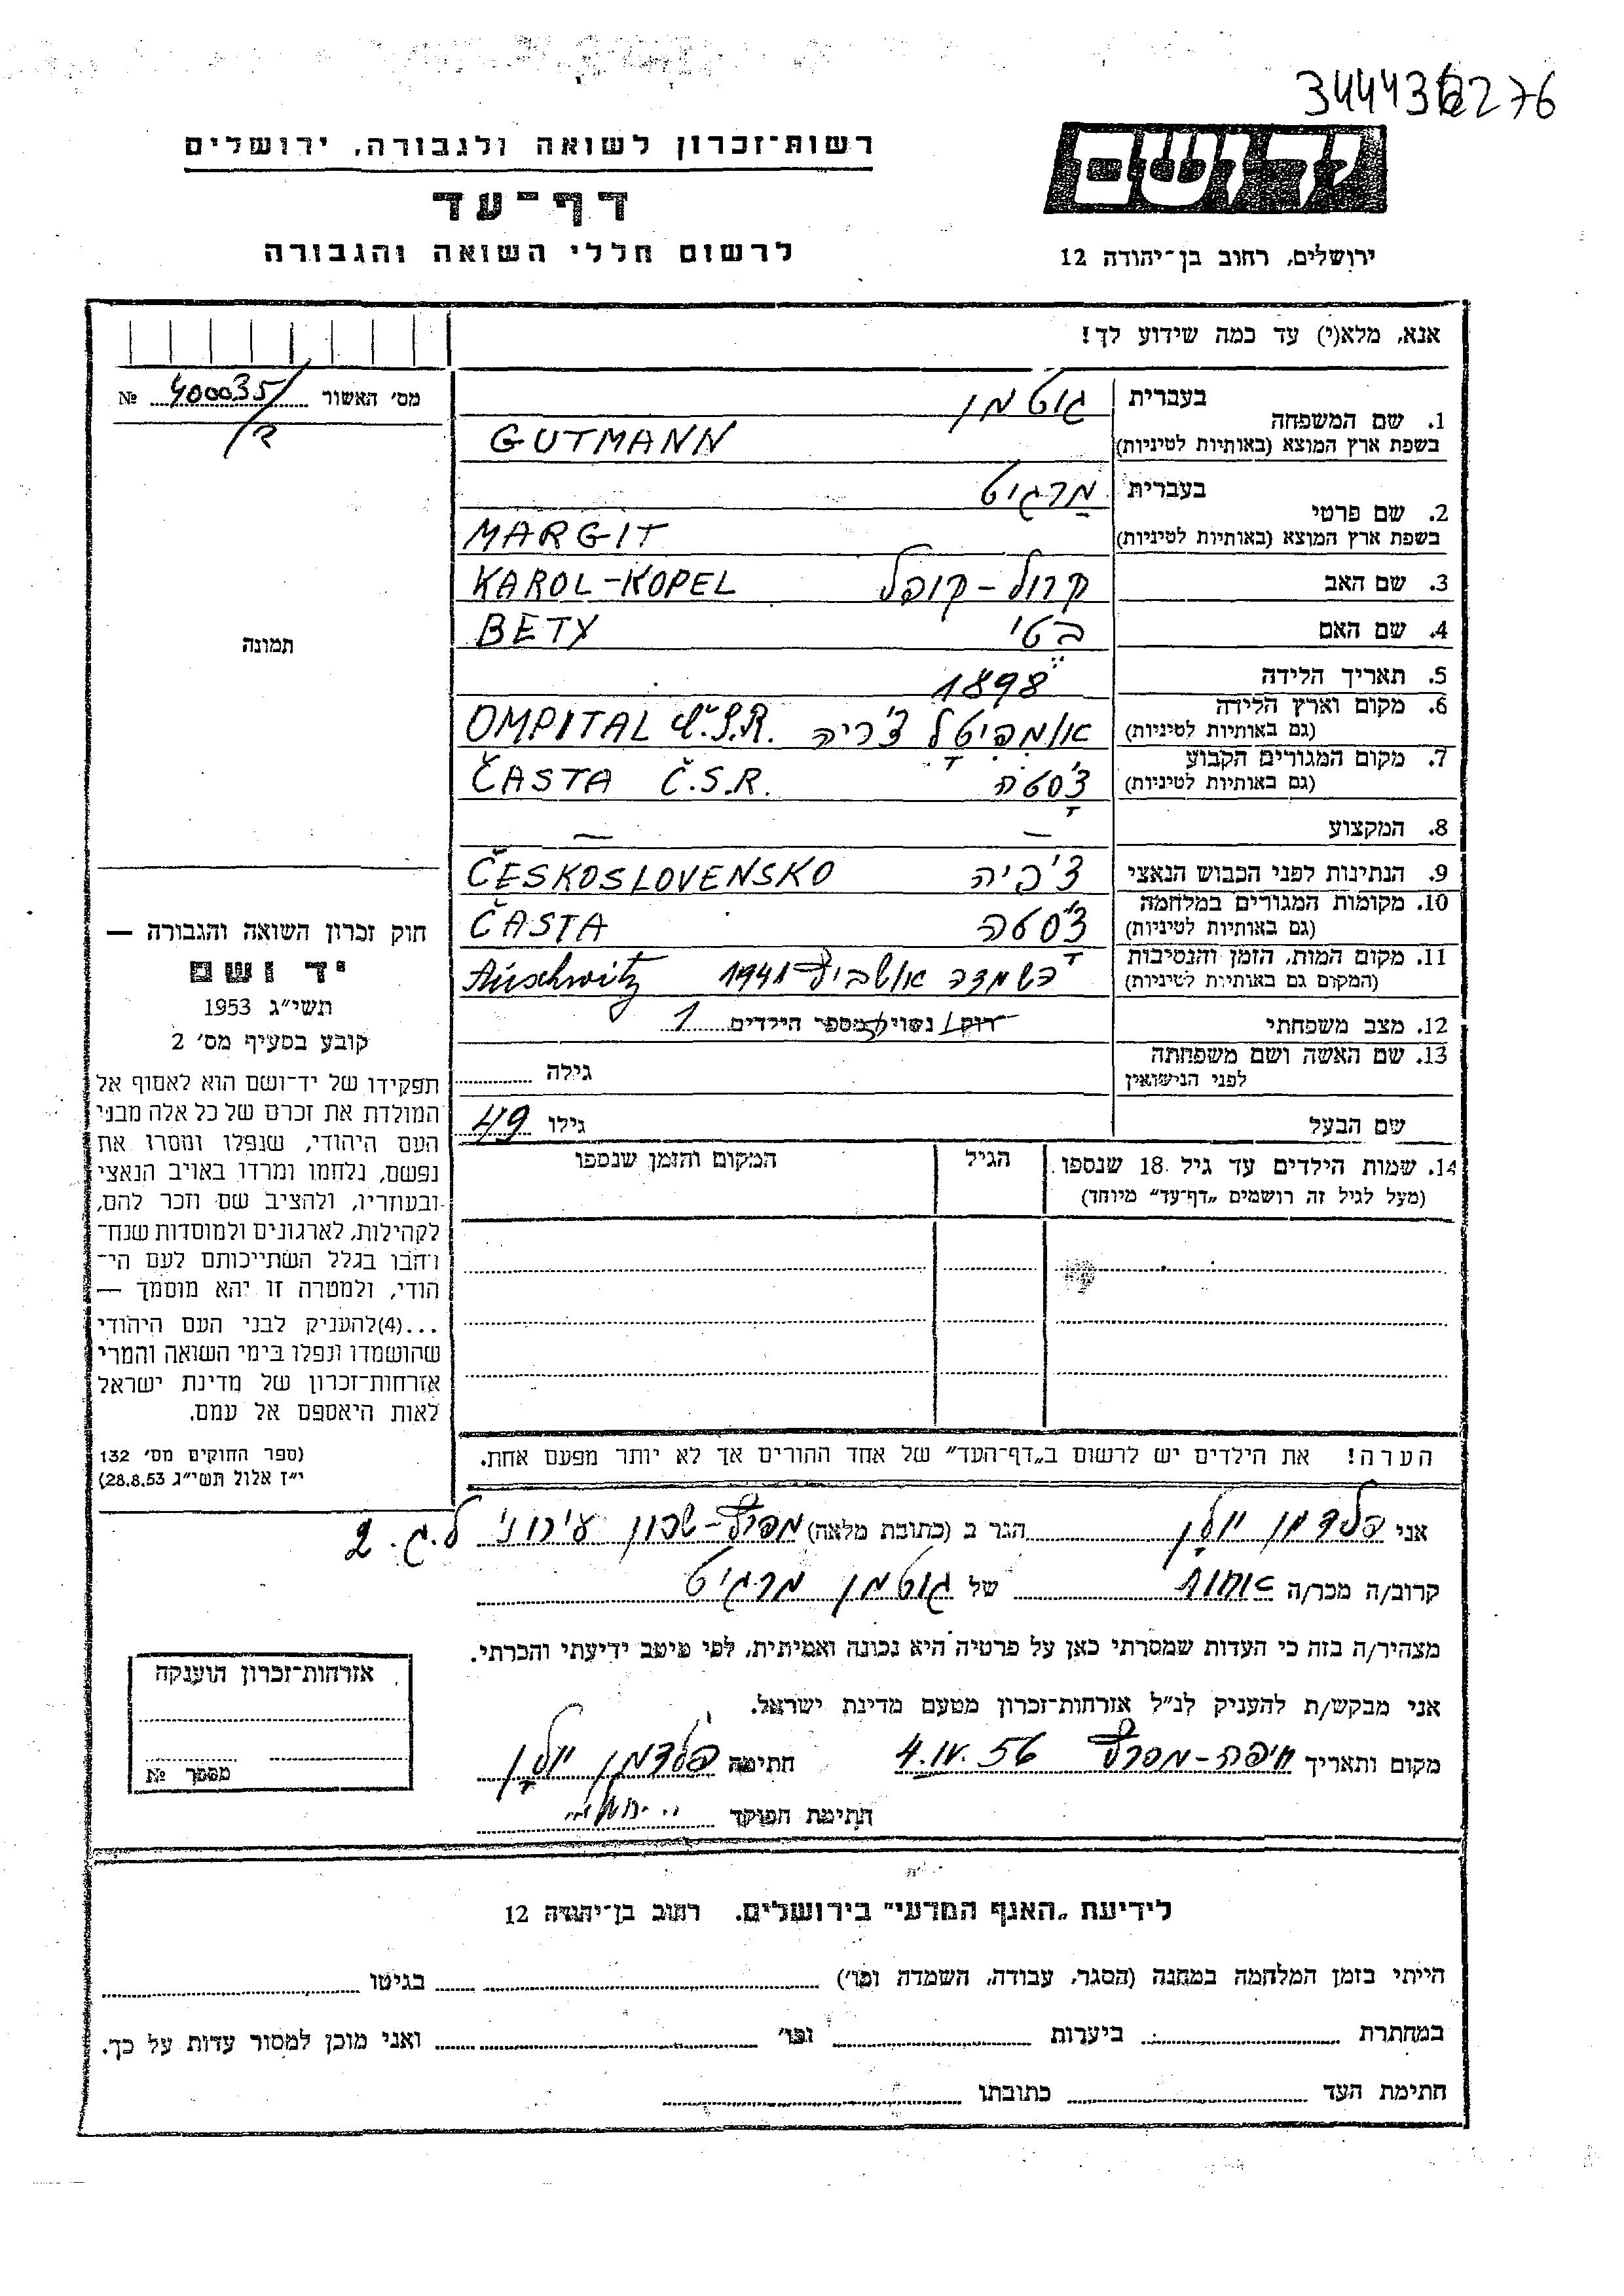 344436276
רשות־זכרון לשואה ולגבורה, ירושלים
דף־עד
לרשום חללי השואה והגבורה
יד ושם
ירושלים, רחוב בן־יהודה 12
אנא, מלא(י) עד כמה שידוע לך!
מס׳ האשור 400035/ №
1. שם המשפחה
בעברית גוטמן
בשפת ארץ המוצא (באותיות לטיניות) GUTMANN
2. שם פרטי
בעברית מרגיט
בשפת ארץ המוצא (באותיות לטיניות) MARGIT
3. שם האב קרול-קופל KAROL-KOPEL
4. שם האם בטי BETY
5. תאריך הלידה 1898
6. מקום וארץ הלידה אומפיטל צ׳ריה OMPITAL Č.S.R.
(גם באותיות לטיניות)
7. מקום המגורים הקבוע צ׳סטה ČASTA Č.S.R.
(גם באותיות לטיניות)
8. המקצוע — —
9. הנתינות לפני הכבוש הנאצי צ׳כיה ČESKOSLOVENSKO
10. מקומות המגורים במלחמה צ׳סטה ČASTA
(גם באותיות לטיניות)
11. מקום המות, הזמן והנסיבות השמדה אושביץ 1941 Auschwitz
(המקום גם באותיות לטיניות)
12. מצב משפחתי רוק/ נשוי/ מספר הילדים 1
13. שם האשה ושם משפחתה
לפני הנישואין גילה
שם הבעל גילו 49
14. שמות הילדים עד גיל 18 שנספו
(מעל לגיל זה רושמים „דף־עד״ מיוחד)
הגיל
המקום והזמן שנספו
הערה! את הילדים יש לרשום ב„דף־העד״ של אחד ההורים אך לא יותר מפעם אחת.
תמונה
חוק זכרון השואה והגבורה —
יד ושם
תשי״ג 1953
קובע בסעיף מס׳ 2
תפקידו של יד־ושם הוא לאסוף אל
המולדת את זכרם של כל אלה מבני
העם היהודי, שנפלו ומסרו את
נפשם, נלחמו ומרדו באויב הנאצי
ובעוזריו, ולהציב שם וזכר להם,
לקהילות, לארגונים ולמוסדות שנח־
רבו בגלל השתייכותם לעם הי־
הודי, ולמטרה זו יהא מוסמך —
...(4) להעניק לבני העם היהודי
שהושמדו ונפלו בימי השואה והמרי
אזרחות־זכרון של מדינת ישראל
לאות היאספם אל עמם.
(ספר החוקים מס׳ 132
י״ז אלול תשי״ג 28.8.53)
אני פלדמן יולן הגר ב (כתובת מלאה) שכון עירוני ל.ג. 2
קרוב/ה מכר/ה אחות של גוטמן מרגיט
מצהיר/ה בזה כי העדות שמסרתי כאן על פרטיה היא נכונה ואמיתית, לפי מיטב ידיעתי והכרתי.
אני מבקש/ת להעניק לנ״ל אזרחות־זכרון מטעם מדינת ישראל.
מקום ותאריך 4.IV.56 חתימה פלדמן יולן
חתימת הפוקד
אזרחות־זכרון הוענקה
מספר №
לידיעת „האגף המדעי״ בירושלים. רחוב בן־יהודה 12
הייתי בזמן המלחמה במחנה (הסגר, עבודה, השמדה וכו׳) בגיטו
במחתרת ביערות וכו׳ ואני מוכן למסור עדות על כך.
חתימת העד כתובתו